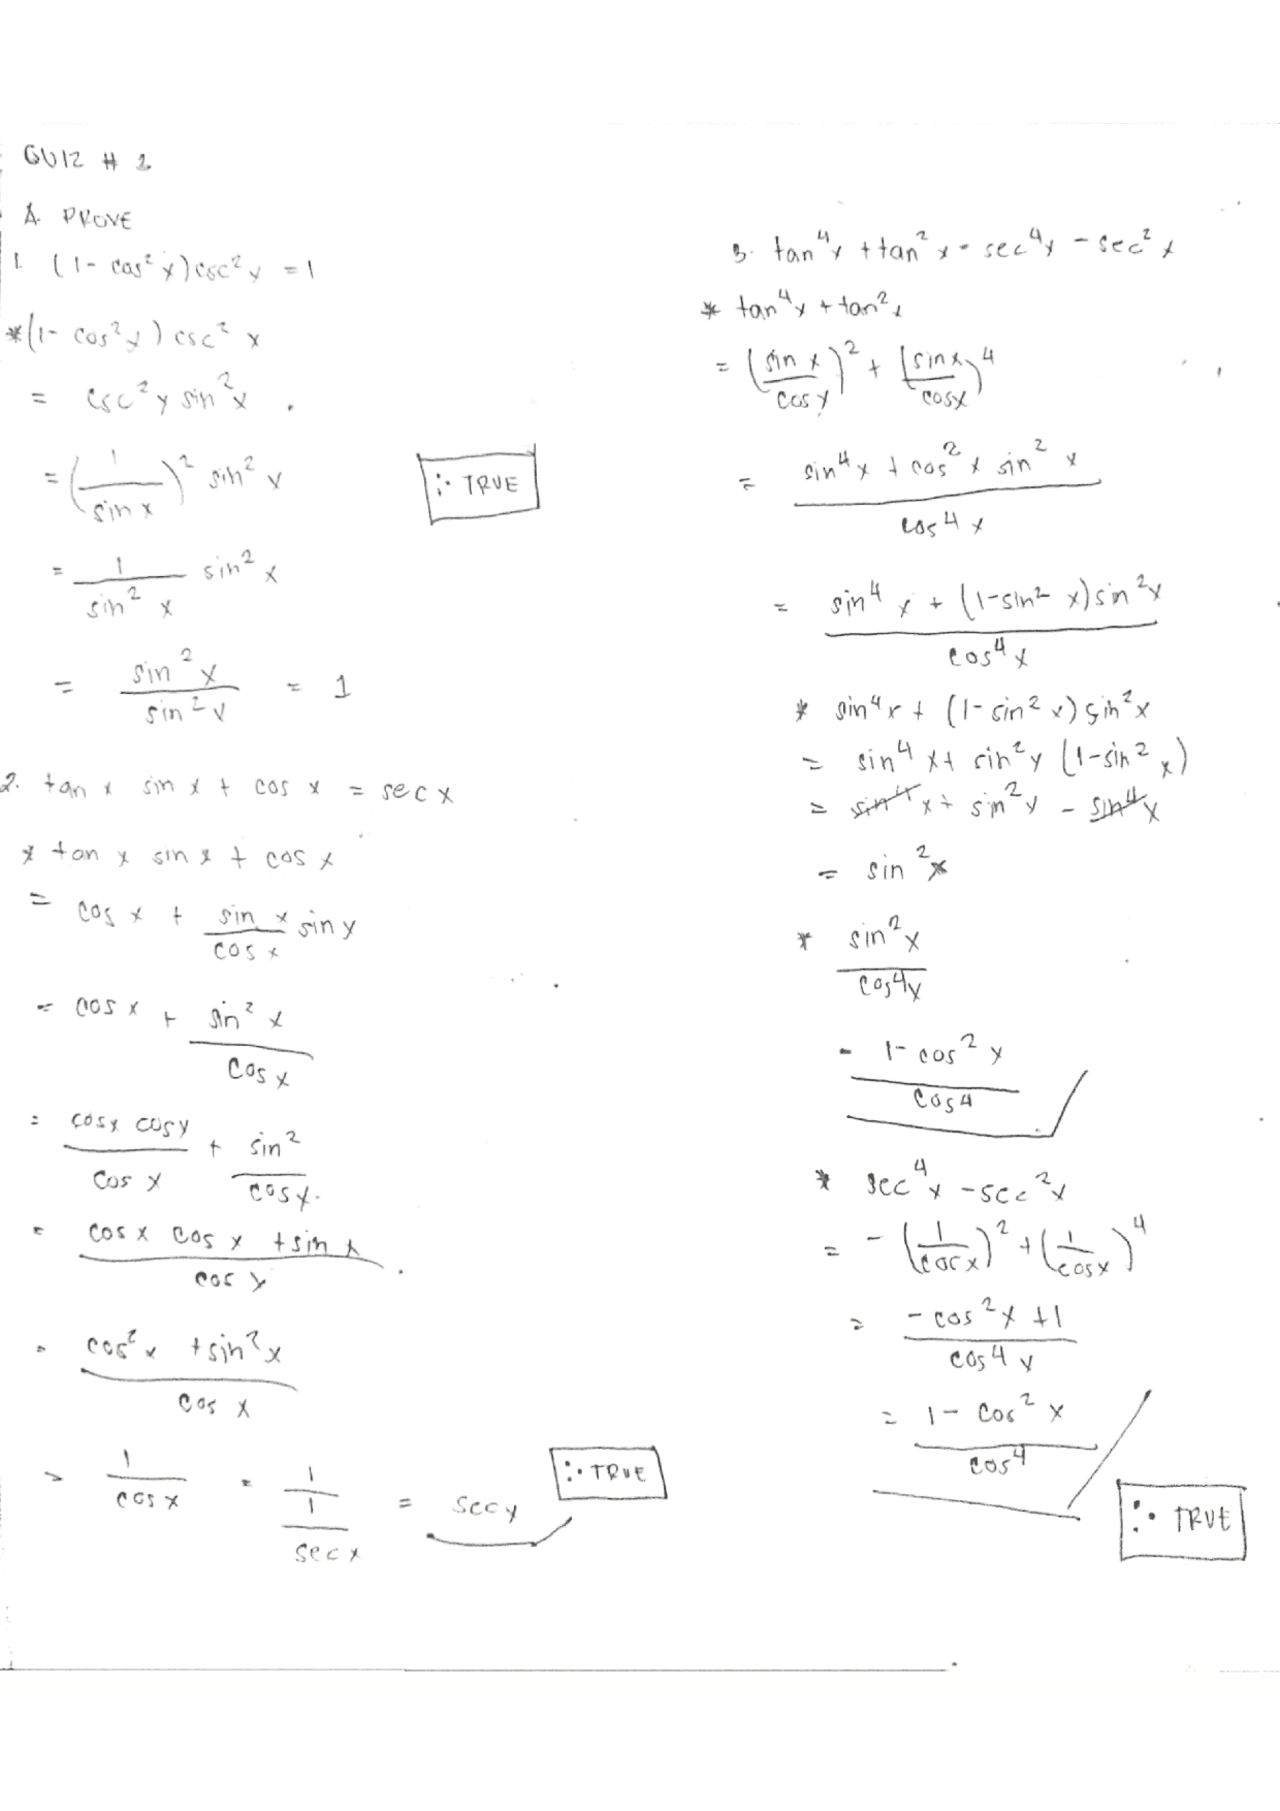 QUIZ # 1
A. PROVE
1. (1 - cos² x) csc² x = 1
* (1 - cos² x) csc² x
= csc² x sin² x .
= (1 / sin x)² sin² x
∴ TRUE
= 1 / sin² x sin² x
= sin² x / sin² x = 1
2. tan x sin x + cos x = sec x
* tan x sin x + cos x
= cos x + sin x / cos x sin x
= cos x + sin² x / cos x
= cos x cos x / cos x + sin² / cos x.
= cos x cos x + sin x / cos x .
= cos² x + sin² x / cos x
= 1 / cos x = 1 / 1 / sec x = sec x
∴ TRUE
3. tan⁴ x + tan² x = sec⁴ x - sec² x
* tan⁴ x + tan² x
= (sin x / cos x)² + (sin x / cos x)⁴
= sin⁴ x + cos² x sin² x / cos⁴ x
= sin⁴ x + (1 - sin² x) sin² x / cos⁴ x
* sin⁴ x + (1 - sin² x) sin² x
= sin⁴ x + sin² x (1 - sin² x)
= sin⁴ x + sin² x - sin⁴ x
= sin² x
* sin² x / cos⁴ x
= 1 - cos² x / cos 4
* sec⁴ x - sec² x
= - (1 / cos x)² + (1 / cos x)⁴
= - cos² x + 1 / cos⁴ x
= 1 - cos² x / cos⁴
∴ TRUE